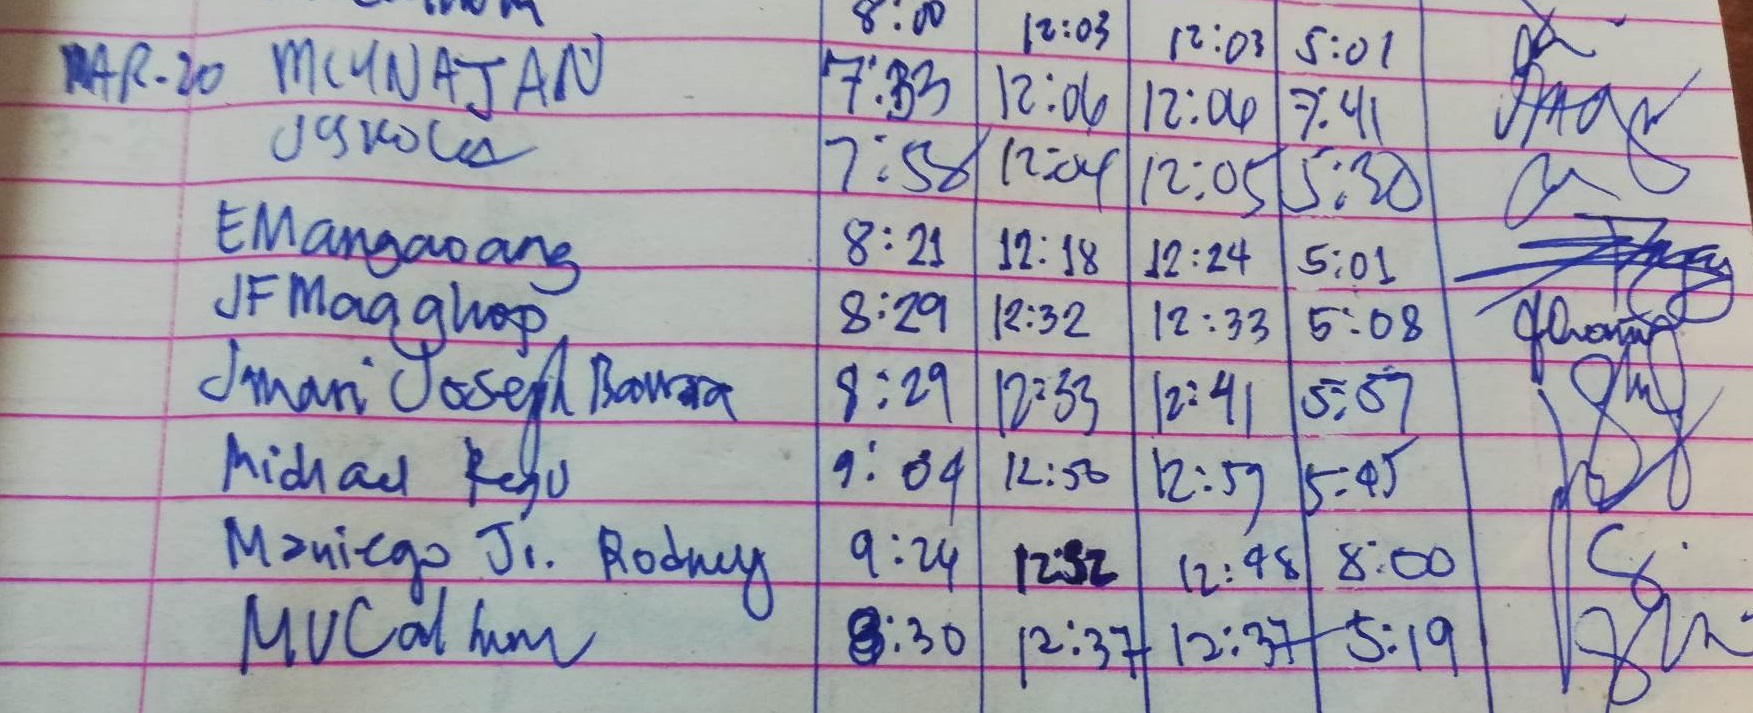 8:00 12:03 12:03 5:01
MAR-20 MCYNAJAN 7:33 12:06 12:06 7:41
7:58 12:04 12:05 5:30
EMangaoang 8:21 12:18 12:24 5:01
JFMagghop 8:29 12:32 12:33 5:08
Jmari Joseph 8:29 12:33 12:41 5:57
Michael 9:04 12:50 12:59 5:45
Maniego Jr. Rodney 9:24 12:32 12:48 8:00
MVCalhum 8:30 12:37 12:37 5:19